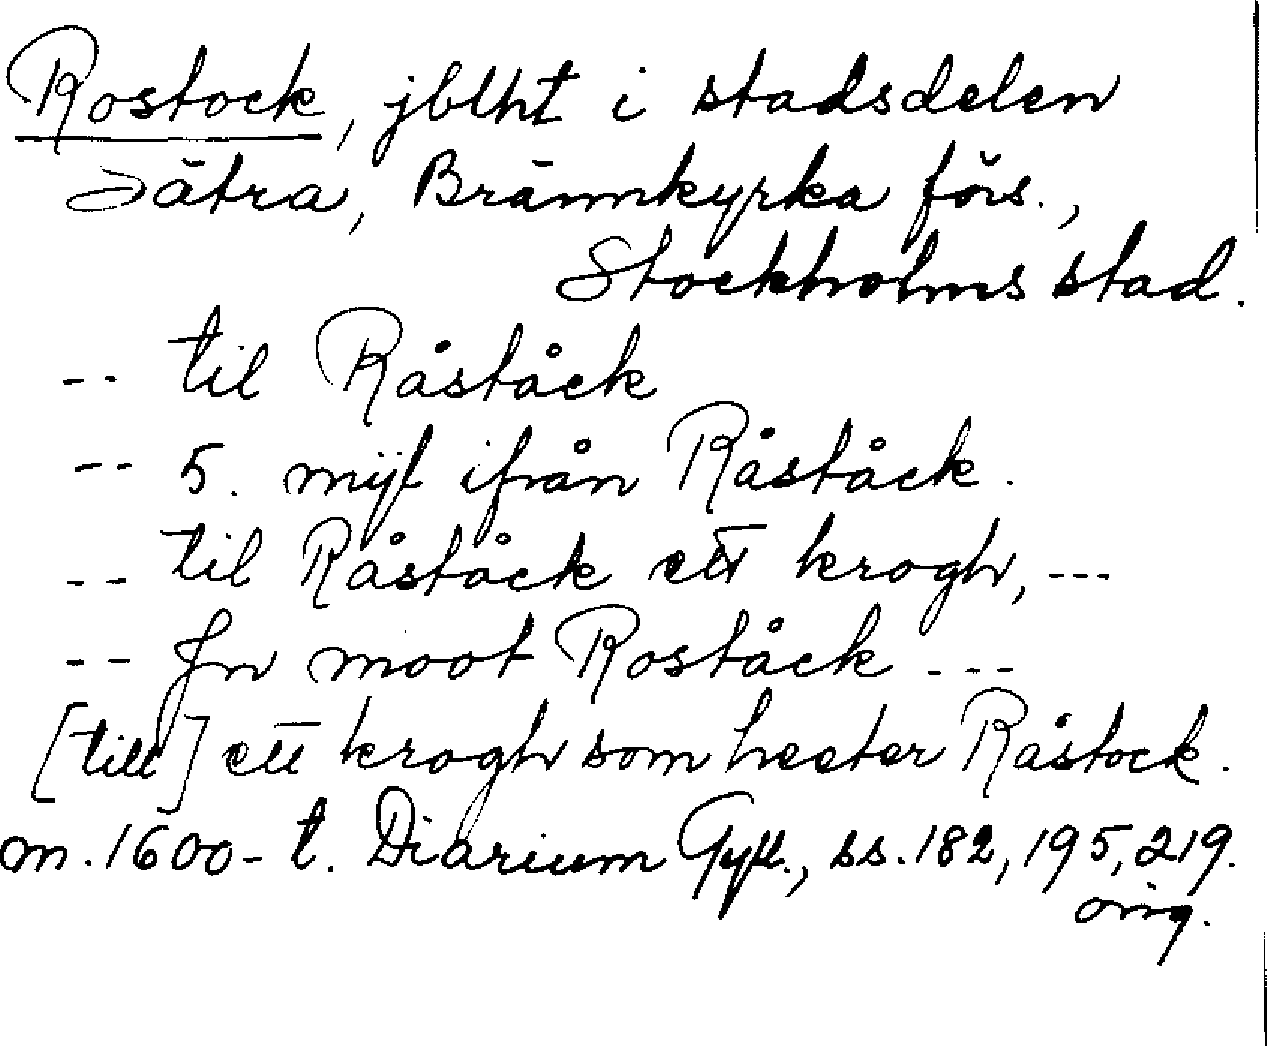 Rostock, jblht i stadsdelen
Sätra, Brännkyrka förs.,
Stockholms stad.
-- til Råståck
-- 5. mÿl ifrån Råståck.
-- til Råståck ett krogh, ---
-- Jn moot Roståck ---
[till] ett krogh som heeter Råstock.
m. 1600-t. Diarium Gyll., ss. 182, 195, 219.
orig.